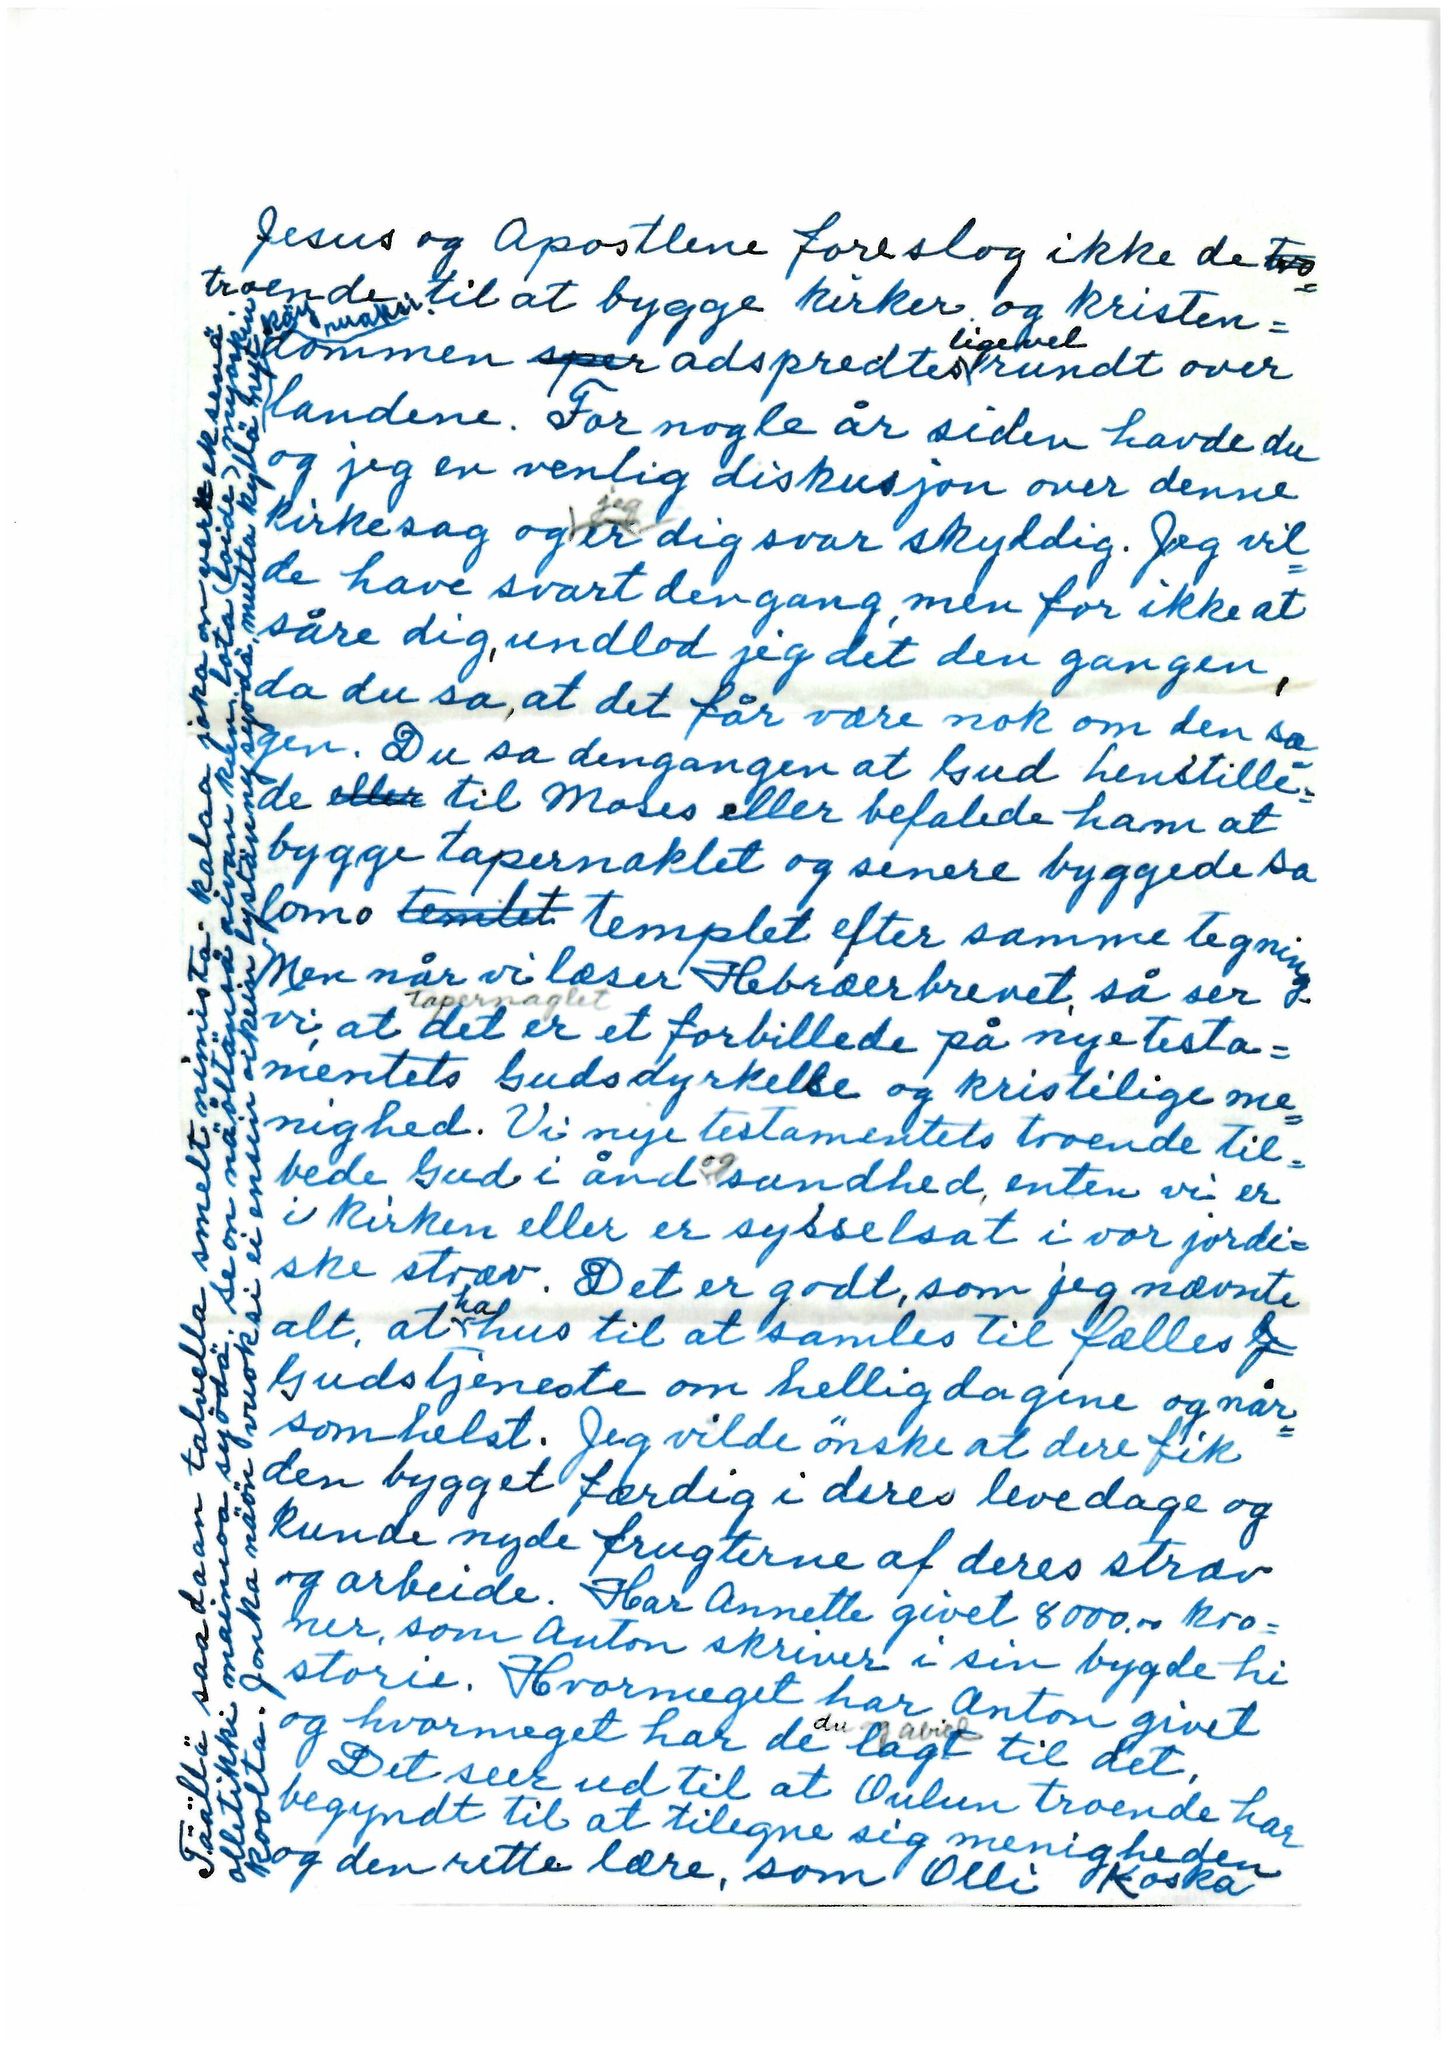 Jesus og Apostlene foreslog ikke de tro=
troende til at bygge kirker og kristen=
dommen sper adspredtes ligevel rundt over
landene. For nogle år siden havde du
og jeg en venlig diskusjon over denne
kirkesag og jeg er dig svar skyldig. Jeg vil=
de have svart dengang, men for ikke at
såre dig, undlod jeg det den gangen,
da du sa, at det får være nok om den sa
gen. Du sa dengangen at Gud henstille=
de eller til Moses eller befalede ham at
bygge tapernaklet og senere byggede sa
lomo temlet templet efter samme tegning
Men når vi læser Hebræerbrevet, så ser
vi, at det tapernaglet er et forbillede på nye testa=
mentets Gudsdyrkelse og kristilige me=
nighed. Vi nye testamentets troende til=
bede Gud i ånd og sandhed, enten vi er
i kirken eller er sysselsat i vor jordi=
ske stræv. Det er godt, som jeg nævnte
alt, at ha hus til at samles til fælles
Gudstjeneste om helligdagene og når=
somhelst. Jeg vilde önske at dere fik
den bygget færdig i deres levedage og
kunde nyde frugterne af deres stræv
og arbeide. Har Annette givet 8000,00 kro=
ner, som Anton skriver i sin bygde hi
storie. Hvormeget har Anton givet
og hvormeget har de du lagt til det,
Det seer ud til at Oulun troende har
begyndt til at tilegne sig menigheden
og den rette lære, som Olli Koska
Täällä saadaan talvella smelt nimistä kalaa joka on
olletikki mainioa syödä, se on näöltänsä aivan kuin lota (loide)
koolta. Jonka näön vuoksi ei ensin oikein lystänny syödä, mutta kyllä nyt
käy